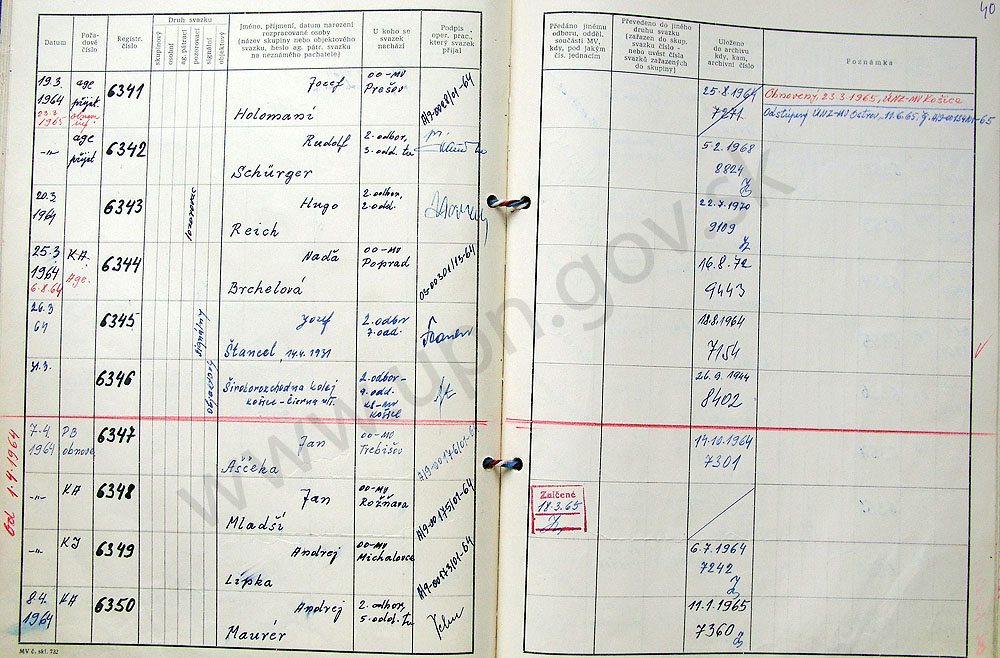 40
Datum
Pořadové číslo
Registr. číslo
Druh svazku
skupinový
osobní
ag. pátrací
pozorovací
signální
objektový
Jméno, příjmení, datum narození rozpracované osoby
(název skupiny nebo objektového svazku, heslo ag. pátr. svazku na neznámého pachatele)
U koho se svazek nachází
Podpis oper. prac., který svazek přijal
Předáno jinému odboru, odděl. součásti MV, kdy, pod jakým čís. jednacím
Převedeno do jiného druhu svazku
(zařazen do skup. svazku číslo - nebo uvést čísla svazků zařazených do skupiny)
Uloženo do archivu kdy, kam, archivní číslo
Poznámka
19.3. 1964
23.3. 1965
age přijat
6341
Jozef
Holomani
OO-MV Prešov
25.8.1964
7271
Obnovený, 23.3.1965, ÚNZ-MV Košice
-„-
age přijat
6342
Rudolf
Schürger
2. odbor,
5.2.1968
8824
20.3. 1964
6343
Hugo
Reich
2. odbor, 2. odd.
22.7.1970
9109
25.3 1964
6.8.64
KA.
Age.
6344
Naďa
Brchelová
OO-MV Poprad
16.8.72
9443
26.3 64
6345
signálny
Jozef
Štancel, 14.4.1931
2. odbor 7. odd.
18.8.1964
7154
31.3.
6346
objektový
Širokorozchodna kolej
Košice - Čierna n/T.
2. odbor-
9. odd.
KS-MV
Košice
8402
Od 1.4.1964
7.4. 1964
PB obnova
6347
Jan
Aščéka
OO-MV Trebišov
A/9-00176/01-64
14.10.1964
7301
-„-
KA
6348
Jan
Mladší
OO-MV Rožňava
A/9-00175/01-64
Zničené
18.3.65
-„-
KJ
6349
Andrej
Lipka
OO-MV Michalovce
A/9-00173/01-64
6.7.1964
7242
8.4. 1964
KA
6350
Andrej
Maurér
2. odbor,
11.1.1965
7360
MV č. skl. 732
www.upn.gov.sk